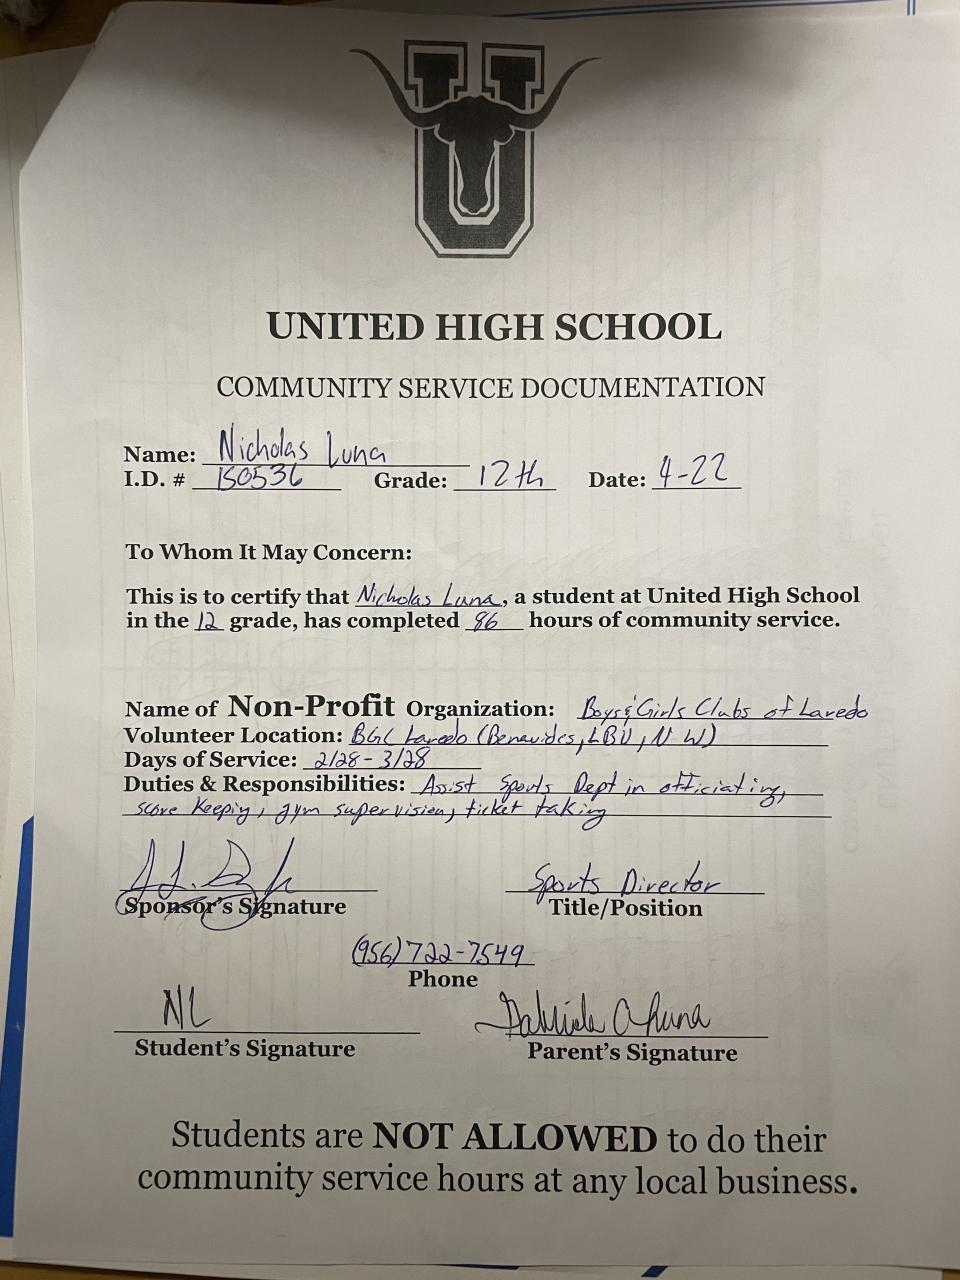 U
UNITED HIGH SCHOOL
COMMUNITY SERVICE DOCUMENTATION
Name: Nicholas Luna
I.D. # 150536 Grade: 12th Date: 4-22
To Whom It May Concern:
This is to certify that Nicholas Luna, a student at United High School
in the 12 grade, has completed 86 hours of community service.
Name of Non-Profit Organization: Boys & Girls Clubs of Laredo
Volunteer Location: BGC Laredo (Benavides, LBV, NW)
Days of Service: 2/28-3/28
Duties & Responsibilities: Assist Sports Dept in officiating,
score keeping, gym supervision, ticket taking
Sponsor's Signature
Sports Director
Title/Position
(956) 722-7549
Phone
NL
Student's Signature
Luna
Parent's Signature
Students are NOT ALLOWED to do their
community service hours at any local business.